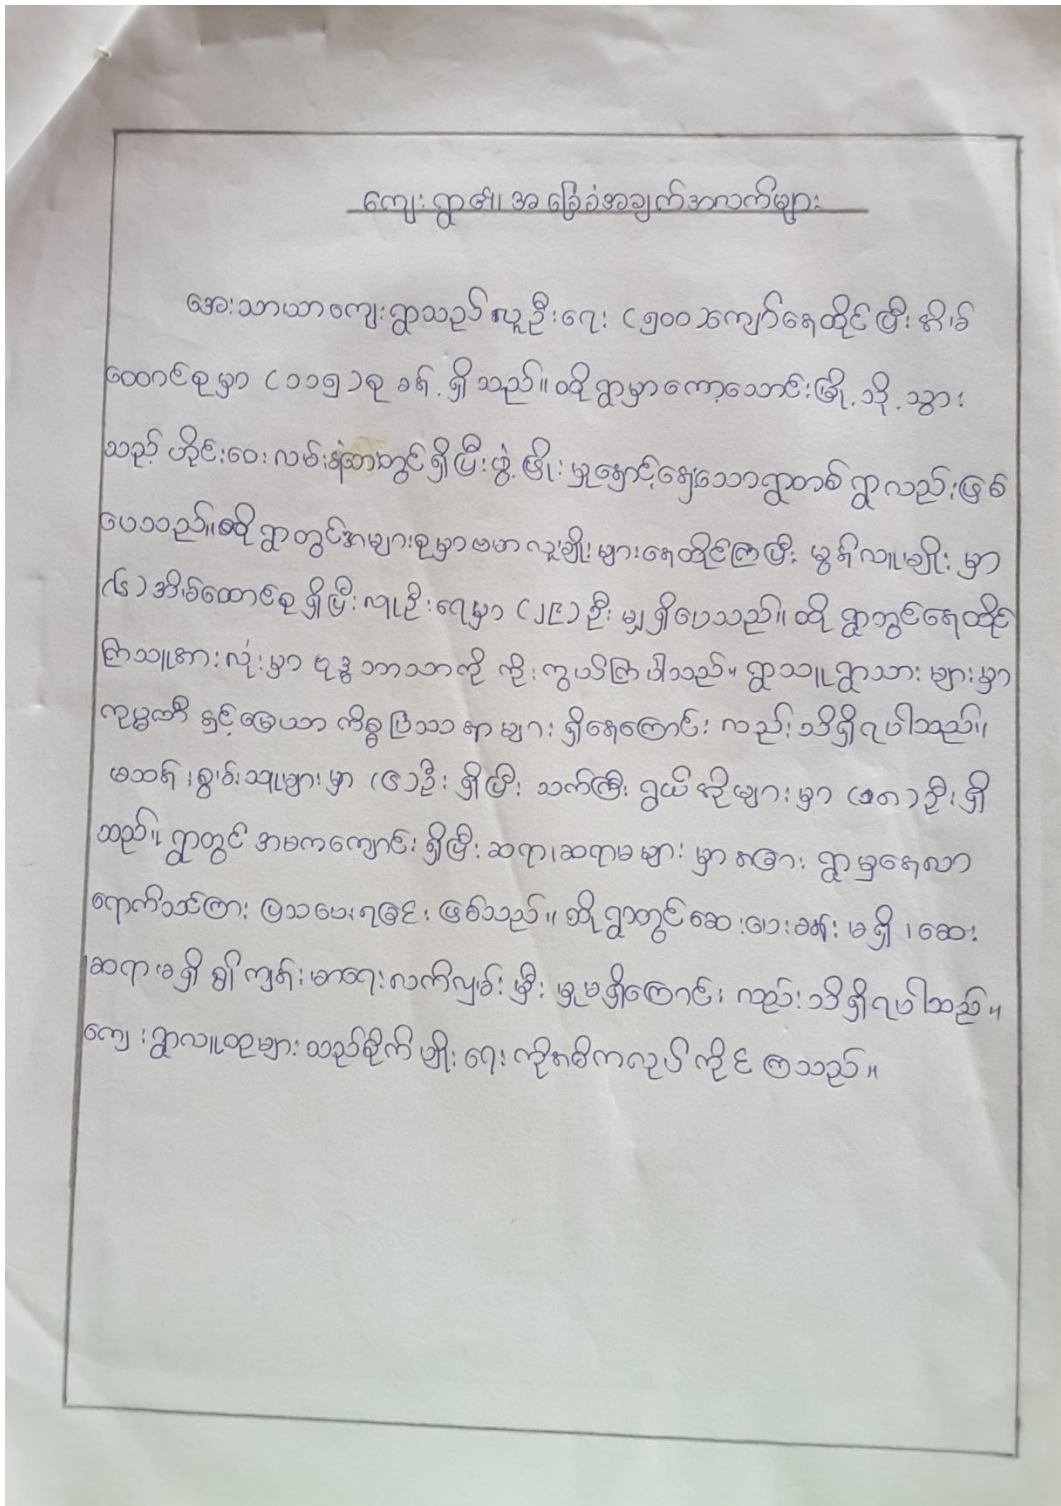 ကျေးရွာ၏ အခြေခံအချက်အလက်များ
အေးသာယာကျေးရွာသည် လူဦးရေ (၅၀၀)ကျော်နေထိုင်ပြီး အိမ်
ထောင်စုမှာ (၁၁၅)စု ခန့်ရှိသည်။ ထိုရွာမှာကော့သောင်းမြို့သို့သွား
သည့် ဟိုင်းဝေးလမ်းနံဘေးတွင်ရှိပြီး ဖွံ့ဖြိုးမှုနှောင့်နှေးသောရွာတစ်ရွာလည်းဖြစ်
ပေသည်။ ထိုရွာတွင်အများစုမှာ ဗမာလူမျိုးများနေထိုင်ကြပြီး မွန်လူမျိုးမှာ
(၆)အိမ်ထောင်စုရှိပြီး လူဦးရေမှာ (၂၉)ဦးမျှရှိပေသည်။ ထိုရွာတွင်နေထိုင်
ကြသူအားလုံးမှာ ဗုဒ္ဓဘာသာကို ကိုးကွယ်ကြပါသည်။ ရွာသူရွာသားများမှာ
ကုမ္ပဏီ နှင့်မြေယာ ကိစ္စပြဿနာများ ရှိနေကြောင်းလည်းသိရှိရပါသည်။
မသန်စွမ်းသူများမှာ (၆)ဦး ရှိပြီး သက်ကြီးရွယ်အိုများမှာ ဦးရှိ
သည်။ ရွာတွင် အမကကျောင်းရှိပြီး ဆရာ၊ဆရာမများ မှာ အခြားရွာမှနေလာ
ရောက်သင်ကြားပြသပေးရခြင်းဖြစ်သည်။ ထိုရွာတွင်ဆေးပေးခန်းမရှိ ၊ဆေး
ဆရာမရှိ၍ ကျန်းမာရေးလက်လှမ်းမှီးမှုမရှိကြောင်း လည်းသိရှိရပါသည်။
ကျေးရွာလူထုများသည်စိုက်ပျိုးရေးကိုအဓိကလုပ်ကိုင်ကြသည်။